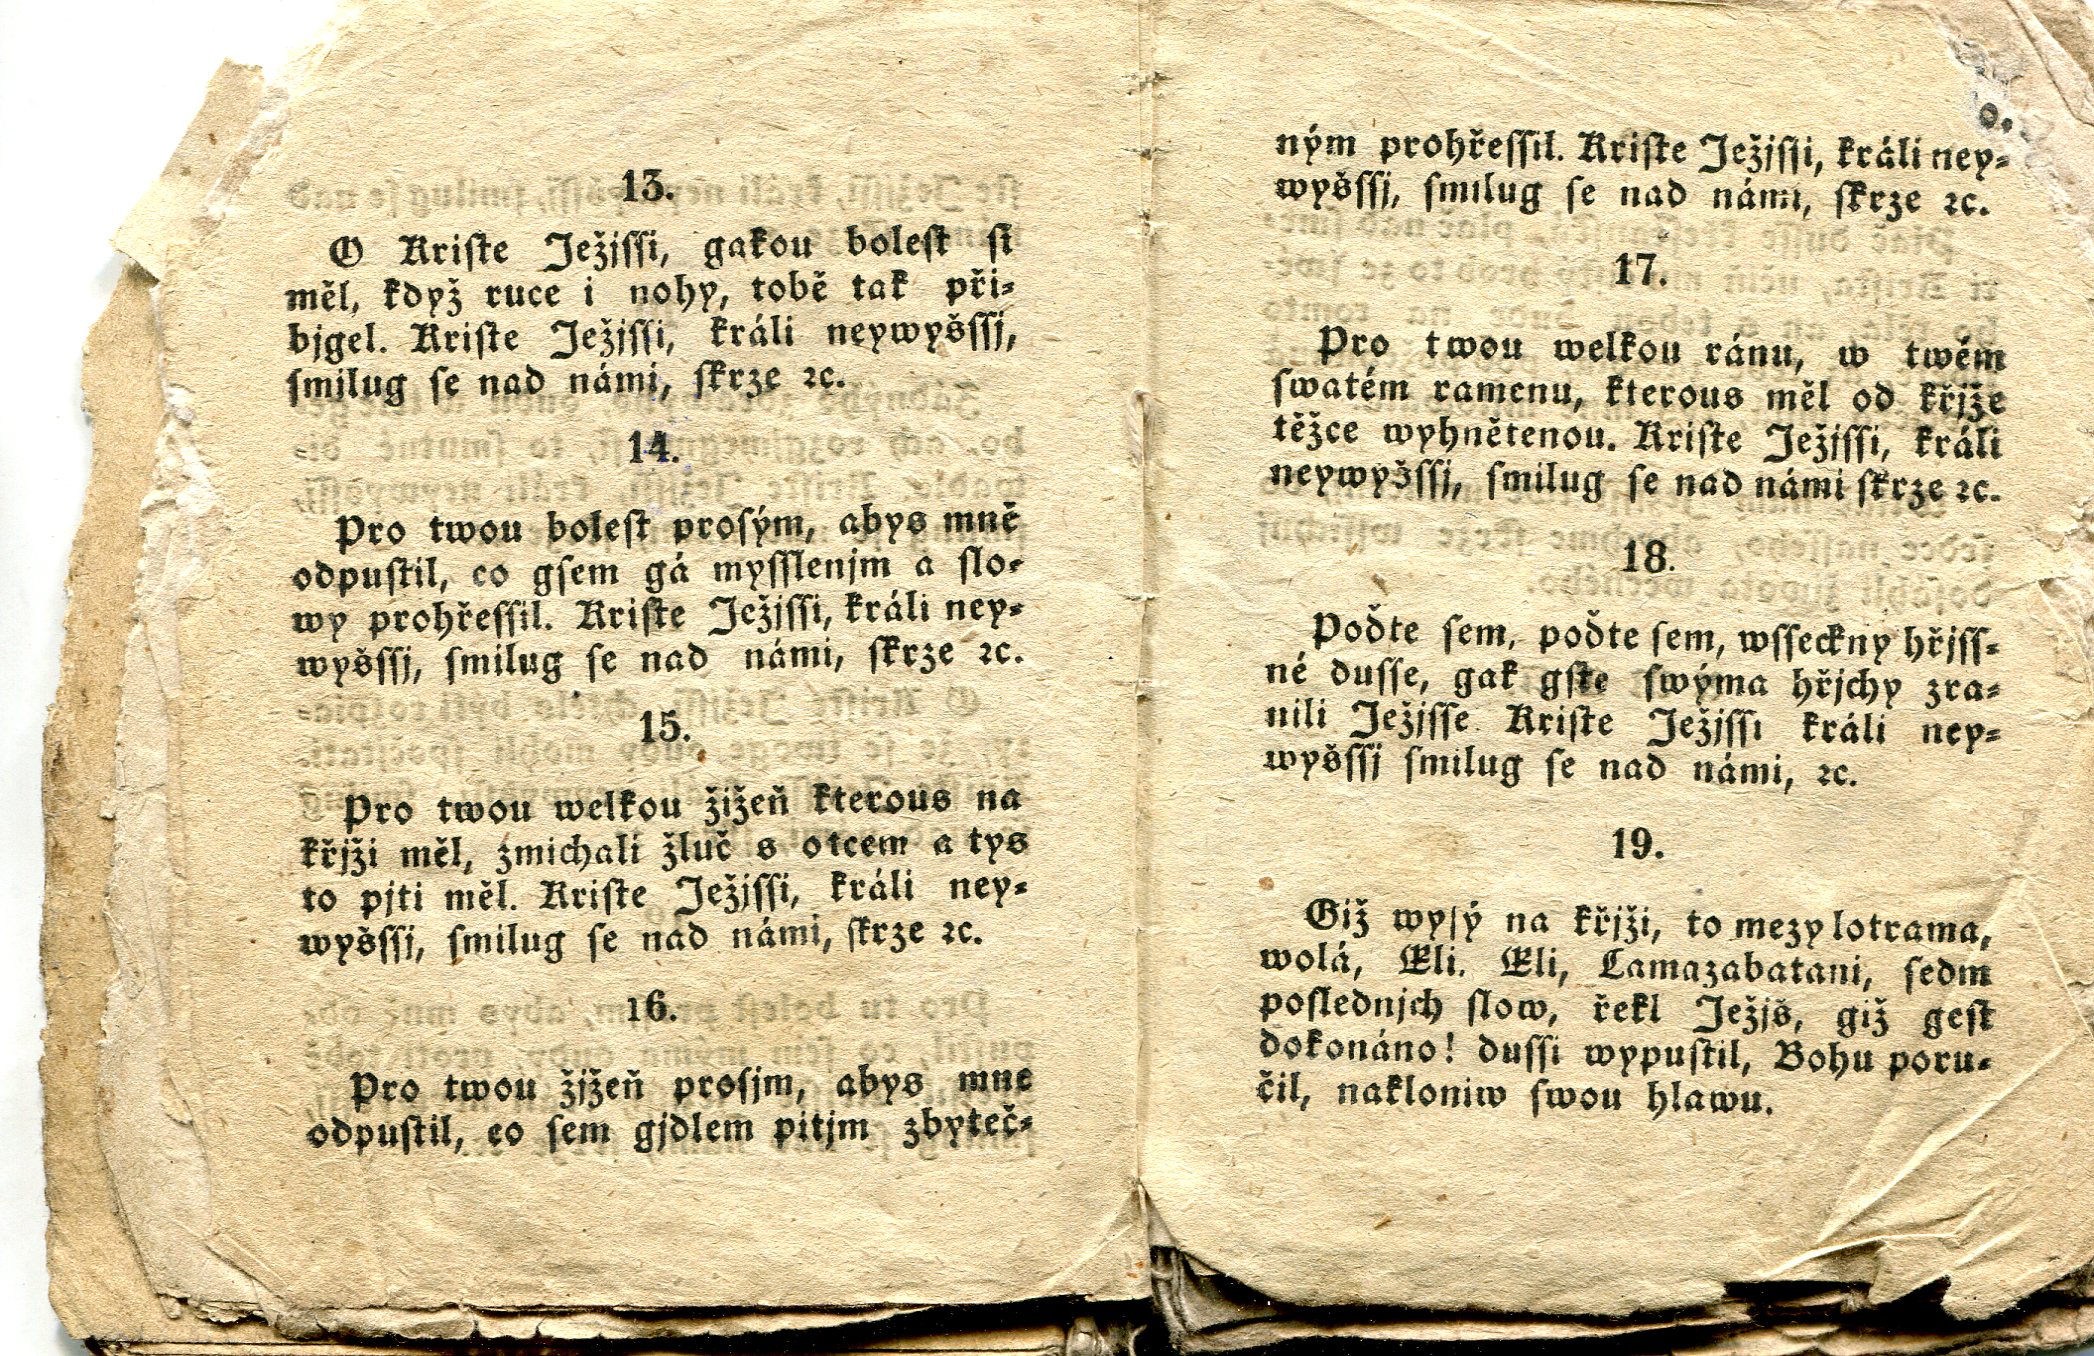 13.
O Kriste Ježjſſi, gakou boleſt ſi
měl, když ruce i nohy, tobě tak při⸗
bjgel. Kriste Ježjſſi, králi neywyšſſj,
ſmilug ſe nad námi, ſkrze ꝛc.
14.
Pro twou boleſt proſým, abys mně
odpuſtil, co gſem gá myſſlenjm a ſlo⸗
wy prohřeſſil. Kriſte Ježjſſi, králi ney⸗
wyšſſj, ſmilug ſe nad námi, ſkrze ꝛc.
15.
Pro twou welkou žižeň kterous na
křjži měl, zmichali žluč s otcem a tys
to pjti měl. Kriſte Ježjſſi, králi ney⸗
wyšſſj, ſmilug ſe nad námi, ſkrze ꝛc.
16.
Pro twou žjžeň proſjm, abys mne
odpuſtil, co ſem gjdlem pitjm zbyteč⸗
ným prohřeſſil. Kriſte Ježjſſi, králi ney⸗
wyšſſj, ſmilug ſe nad námi, ſkrze ꝛc.
17.
Pro twou welkou ránu, w twém
ſwatém ramenu, kterous měl od křjže
těžce wyhnětenou. Kriſte Ježjſſi, králi
neywyšſſj, ſmilug ſe nad námi ſkrze ꝛc.
18.
Poďte ſem, poďte ſem, wſſeckny hřjſſ⸗
né duſſe, gak gſte ſwýma hřjchy zra⸗
nili Ježjſſe. Kriſte Ježjſſi králi ney⸗
wyšſſj ſmilug ſe nad námi, ꝛc.
19.
Giž wyſý na křjži, to mezy lotrama,
wolá, Eli. Eli, Lamazabatani, ſedm
poſlednjch ſlow, řekl Ježjš, giž geſt
dokonáno! duſſi wypuſtil, Bohu poru⸗
čil, nakloniw ſwou hlawu.